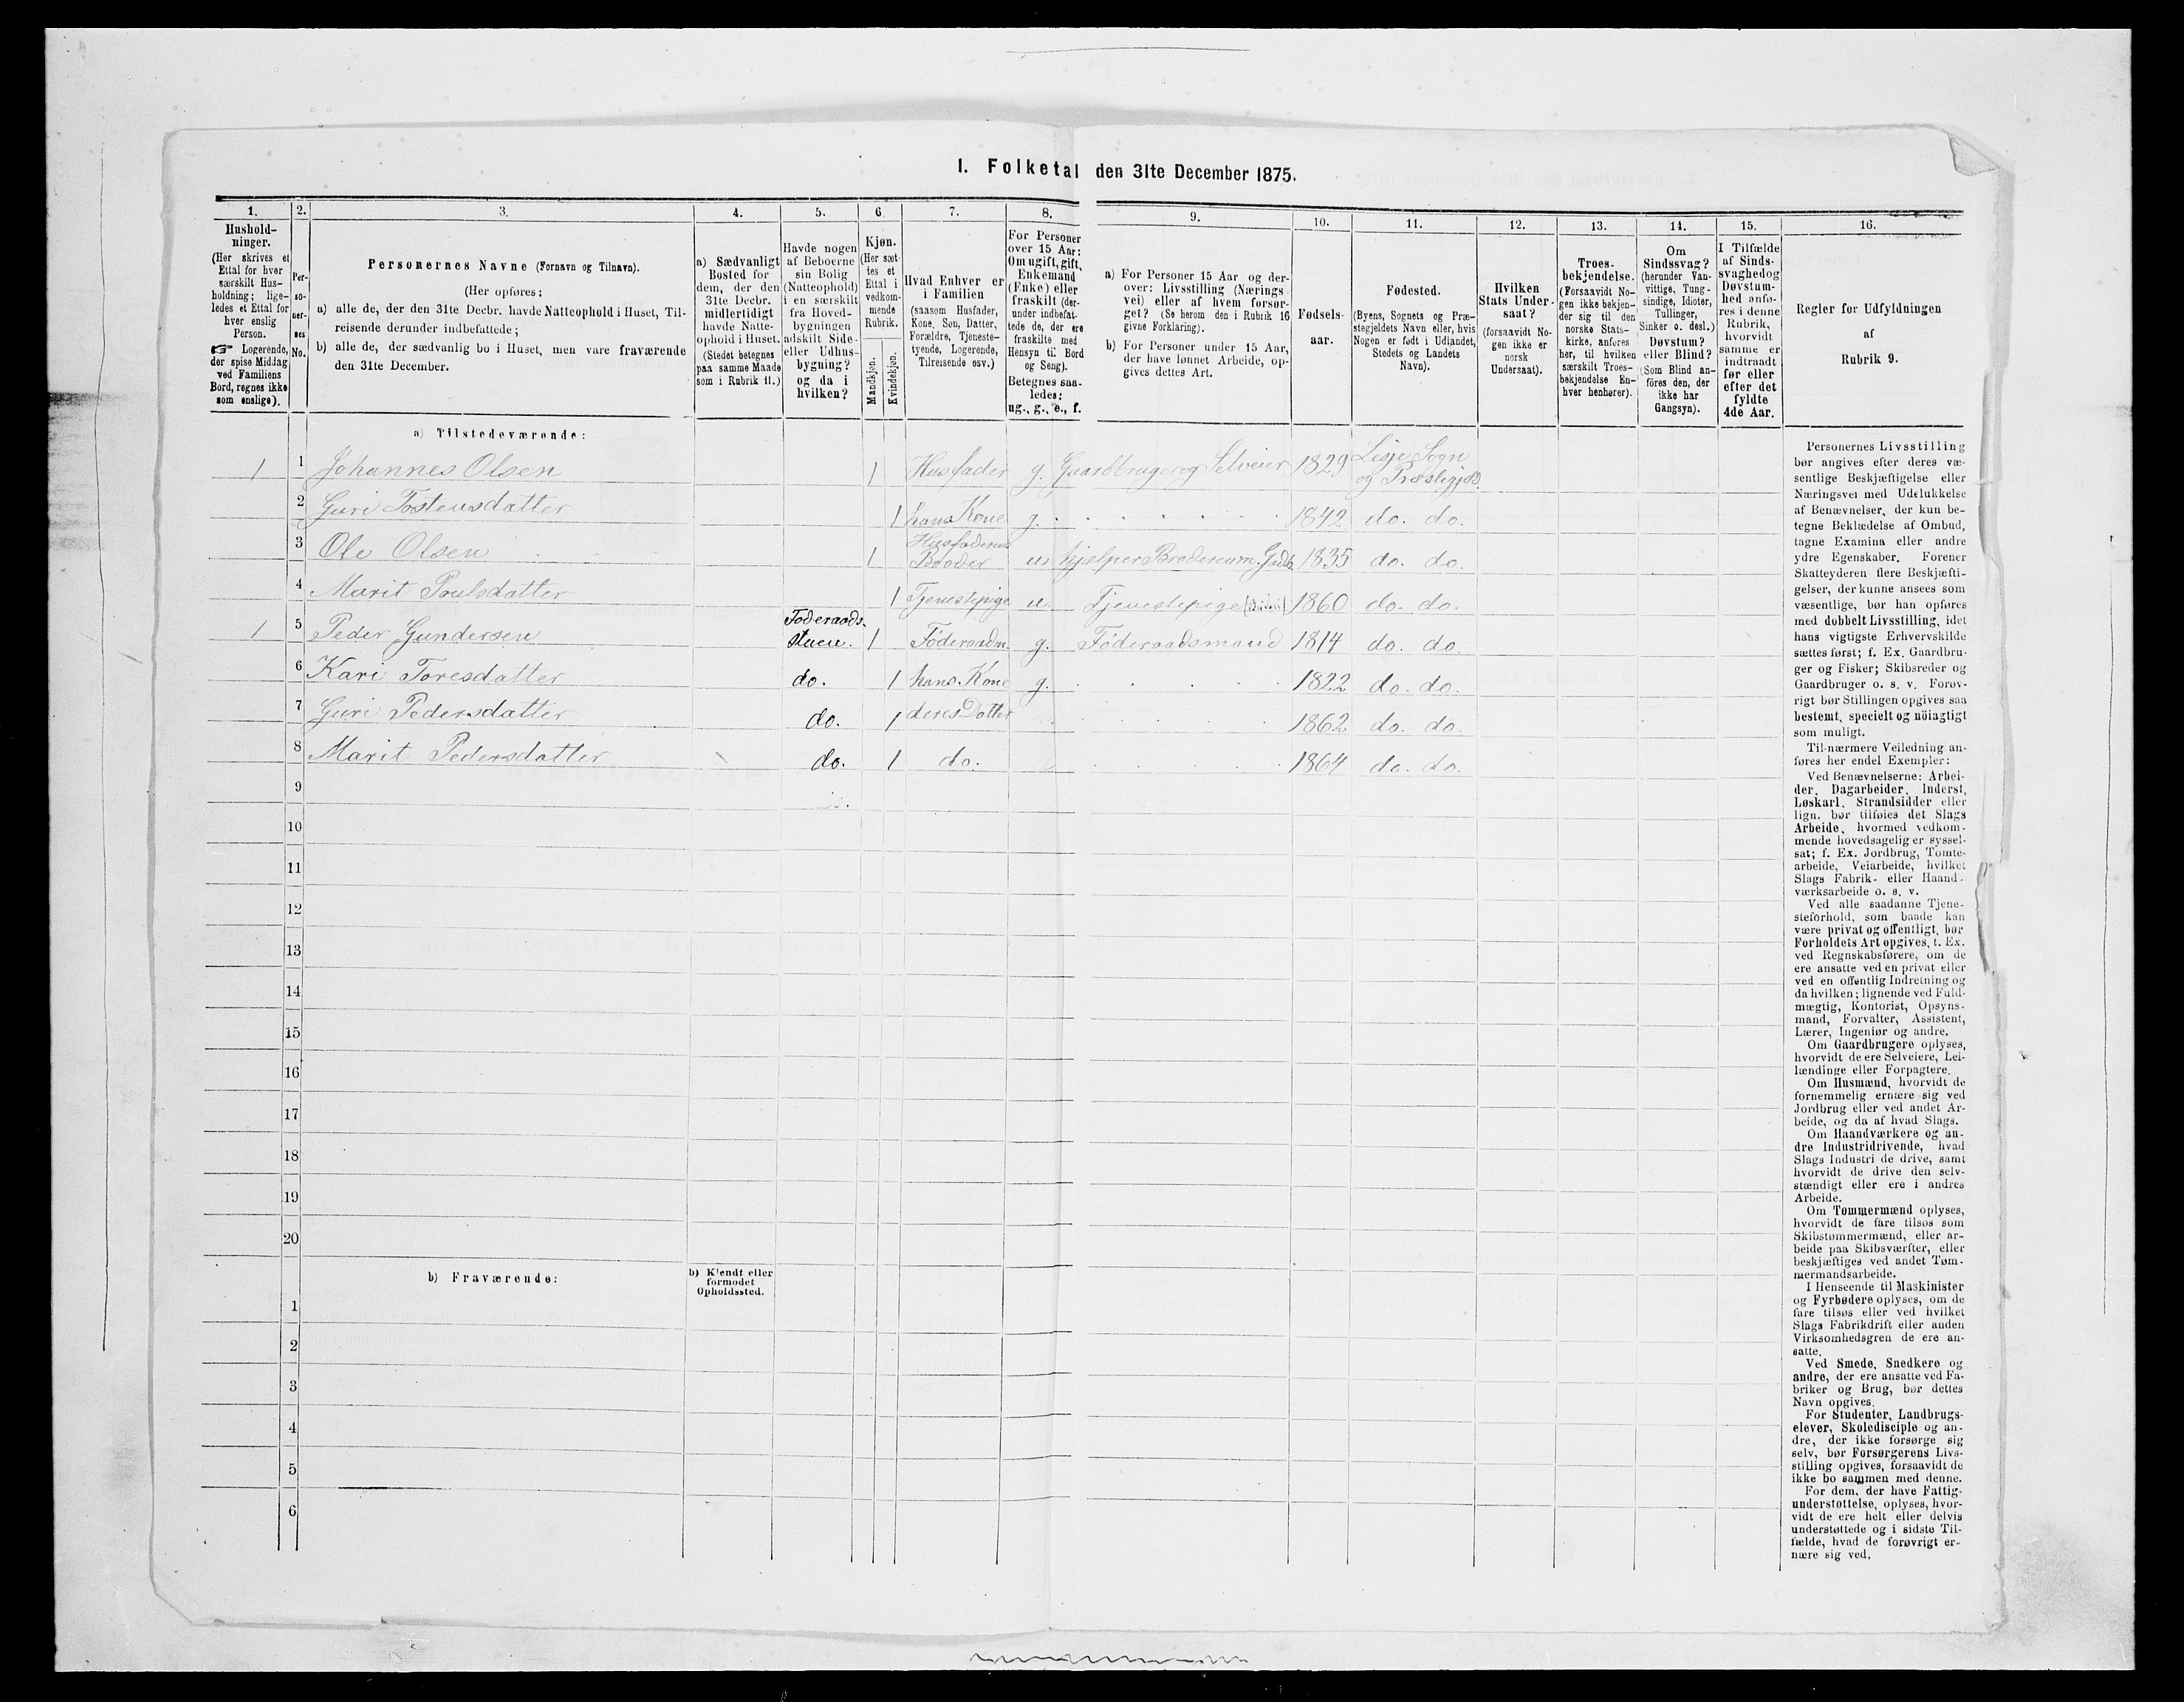 I. Folketal den 31te December 1875.
1.
Hushold-
ninger.
(Her skrives et
Ettal for hver
særskilt Hus-
holdning; lige-
ledes et Ettal for
hver enslig
Person.
☞ Logerende,
der spise Middag
ved Familiens
Bord, regnes ikke
som enslige).
2.
Per-
so-
ner-
nes
No.
3.
Personernes Navne (Fornavn og Tilnavn).
(Her opføres:
a) alle de, der den 31te Decbr. havde Natteophold i Huset, Til-
reisende derunder indbefattede;
b) alle de, der sædvanlig bo i Huset, men vare fraværende
den 31te December.
4.
a) Sædvanligt
Bosted for
dem, der den
31te Decbr.
midlertidigt
havde Natte-
ophold i Huset.
(Stedet betegnes
paa samme Maade
som i Rubrik 11.)
5.
Havde nogen
af Beboerne
sin Bolig
(Natteophold)
i en særskilt
fra Hoved-
bygningen
adskilt Side-
eller Udhus-
bygning?
og da i
hvilken?
6.
Kjøn.
(Her sæt-
tes et
Ettal i
vedkom-
mende
Rubrik.
Mandkjøn.
Kvindekjøn.
7.
Hvad Enhver er
i Familien
(saasom Husfader,
Kone, Søn, Datter,
Forældre, Tjeneste-
tyende, Logerende,
Tilreisende osv.)
8.
For Personer
over 15 Aar:
Om ugift, gift,
Enkemand
(Enke) eller
fraskilt (der-
under indbefat-
tede de, der ere
fraskilte med
Hensyn til Bord
og Seng).
Betegnes saa-
ledes:
ug., g., e., f.
9.
a) For Personer 15 Aar og der-
over: Livsstilling (Nærings
vei) eller af hvem forsør-
get? (Se herom den i Rubrik 16
givne Forklaring).
b) For Personer under 15 Aar,
der have lønnet Arbeide, op-
gives dettes Art.
10.
Fødsels-
aar.
11.
Fødested.
(Byens, Sognets og Præ-
stegjeldets Navn eller, hvis
Nogen er født i Udlandet,
Stedets og Landets
Navn).
12.
Hvilken
Stats Under-
saat?
(forsaavidt No-
gen ikke er
norsk
Undersaat).
13.
Troes-
bekjendelse.
(Forsaavidt No-
gen ikke bekjen-
der sig til den
norske Stats-
kirke, anføres
her, til hvilken
særskilt Troes-
bekjendelse En-
hver henhører).
14.
Om
Sindssvag?
(herunder Van-
vittige, Tung-
sindige, Idioter,
Tullinger,
Sinker o. desl.)
Døvstum?
eller Blind?
(Som Blind an-
føres den, der
ikke har
Gangsyn).
15.
I Tilfælde
af Sinds-
svaghed og
Døvstum-
hed anfø-
res i denne
Rubrik,
hvorvidt
samme er
indtraadt
før eller
efter det
fyldte
4de Aar.
16.
Regler for Udfyldningen
af
Rubrik 9.
a) Tilstedeværende:
1 1 Johannes Olsen 1 Husfader g. Gaardbruger og Selveier 1829 Lesje Sogn
og Præstegjæld.
2 Guri Tostensdatter 1 hans Kone g. 1842 do. do.
3 Ole Olsen 1 Husfaderens
Broder u hjelper Broderen m. 1835 do. do.
4 Marit Poulsdatter 1 Tjenestepige u Tjenestepige 1860 do. do.
1 5 Peder Gundersen Føderaads-
stuen. 1 Føderaadm. g. Føderaadsmand 1814 do. do.
6 Kari Toresdatter do. 1 hans Kone g. 1822 do. do.
7 Guri Pedersdatter do. 1 deres Datter 1862 do. do.
8 Marit Pedersdatter do. 1 do. 1864 do. do.
9
10
11
12
13
14
15
16
17
18
19
20
b) Fraværende:
b) Kjendt eller
formodet
Opholdssted.
1
2
3
4
5
6
Personernes Livsstilling
bør angives efter deres væ-
sentlige Beskjæftigelse eller
Næringsvei med Udelukkelse
af Benævnelser, der kun be-
tegne Beklædelse af Ombud,
tagne Examina eller andre
ydre Egenskaber. Forener
Skatteyderen flere Beskjæfti-
gelser, der kunne ansees som
væsentlige, bør han opføres
med dobbelt Livsstilling, idet
hans vigtigste Erhvervskilde
sættes først; f. Ex. Gaardbru-
ger og Fisker; Skibsreder og
Gaardbruger o. s. v. Forøv-
rigt bør Stillingen opgives saa
bestemt, specielt og nöiagtigt
som muligt.
Til nærmere Veiledning an-
føres her endel Exempler:
Ved Benævnelserne: Arbei-
der, Dagarbeider, Inderst,
Løskarl, Strandsidder eller
lign. bør tilføies det Slags
Arbeide, hvormed vedkom-
mende hovedsagelig er syssel-
sat; f. Ex. Jordbrug, Tomte-
arbeide, Veiarbeide, hvilket
Slags Fabrik- eller Haand-
værksarbeide o. s. v.
Ved alle saadanne Tjene-
steforhold, som baade kan
være privat og offentligt, bør
Forholdets Art opgives, t. Ex.
ved Regnskabsførere, om de
ere ansatte ved en privat eller
ved en offentlig Indretning og
da hvilken; lignende ved Fuld-
mægtig, Kontorist, Opsyns-
mand, Forvalter, Assistent,
Lærer, Ingeniør og andre.
Om Gaardbrugere oplyses,
hvorvidt de ere Selveiere, Lei-
lændinge eller Forpagtere.
Om Husmænd, hvorvidt de
fornemmelig ernære sig ved
Jordbrug eller ved andet Ar-
beide, og da af hvad Slags.
Om Haandværkere og an-
dre Industridrivende, hvad
Slags Industri de drive, samt
hvorvidt de drive den selv-
stændigt eller ere i andres
Arbeide.
Om Tømmermænd oplyses,
hvorvidt de fare tilsøs som
Skibstømmermænd, eller ar-
beide paa Skibsværfter, eller
beskjæftiges ved andet Tøm-
mermandsarbeide.
I Henseende til Maskinister
og Fyrbødere oplyses, om de
fare tilsøs eller ved hvilket
Slags Fabrikdrift eller anden
Virksomhedsgren de ere an-
satte.
Ved Smede, Snedkere og
andre, der ere ansatte ved Fa-
briker og Brug, bør dettes
Navn opgives.
For Studenter, Landbrugs-
elever, Skoledisciple og an-
dre, der ikke forsørge sig
selv, bør Forsørgerens Livs-
stilling opgives, forsaavidt de
ikke bo sammen med denne.
For dem, der have Fattig-
understøttelse, oplyses, hvor-
vidt de ere helt eller delvis
understøttede og i sidste Til-
fælde, hvad de forøvrigt er-
nære sig ved.